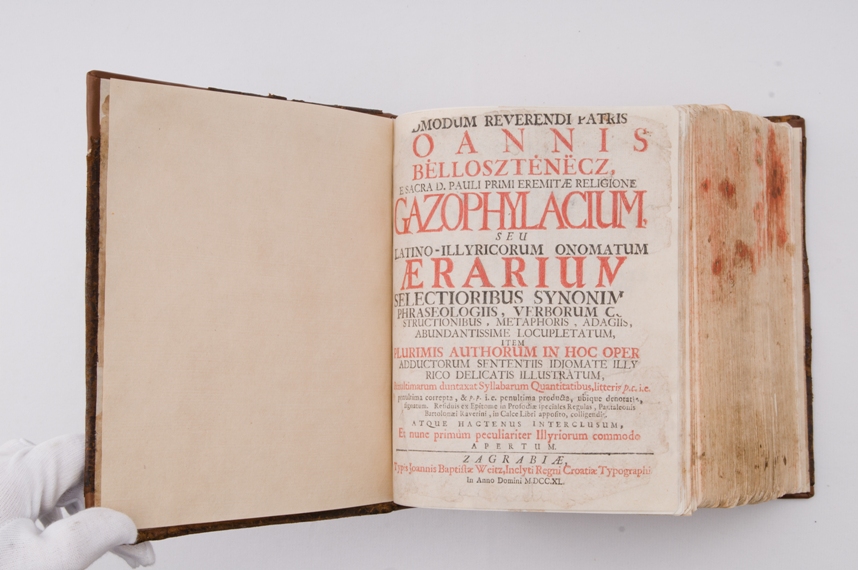 OMODUM REVERENDI PATRIS
OANNIS
BĖLLOSZTĖNĖCZ,
E SACRA D. PAULI PRIMI EREMITÆ RELIGIONE
GAZOPHYLACIUM,
SEU
LATINO-ILLYRICORUM ONOMATUM
ÆRARIUM
SELECTIORIBUS SYNONIM
PHRASEOLOGIIS, VERBORUM C
STRUCTIONIBUS, METAPHORIS, ADAGIIS,
ABUNDANTISSIME LOCUPLETATUM,
ITEM
PLURIMIS AUTHORUM IN HOC OPER
ADDUCTORUM SENTENTIIS IDIOMATE ILLY
RICO DELICATIS ILLUSTRATUM,
duntaxat Syllabarum Quantitatibus, litteris p.c. i.e.
penultima correpta, & p.p. i.e. penultima producta, ubique denotatis,
Residuis ex Epitome in Prosodiæ speciales Regulas, Pantaleonis
Bartolonæi Raverini, in Calce Libri apposito, colligendis.
ATQUE HACTENUS INTERCLUSUM,
Et nunc primùm peculiariter Illyriorum commodo
APERTUM.
ZAGRABIÆ,
Typis Joannis Baptistæ Weitz, Inclyti Regni Croatiæ Typographi
In Anno Domini M.DCC.XL.